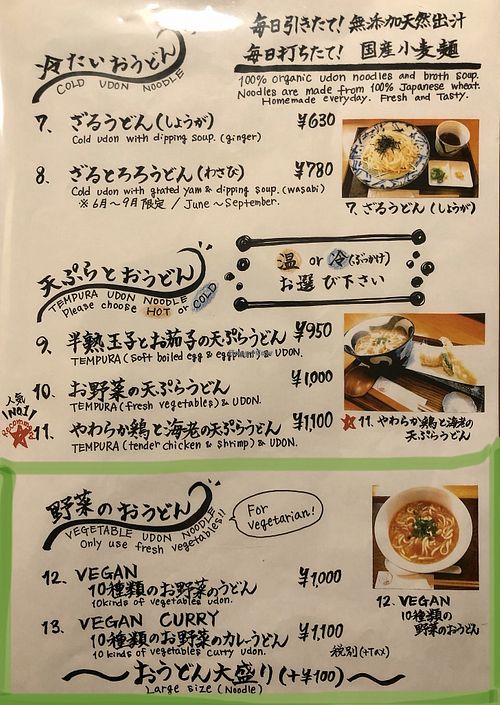 毎日引きたて! 無添加天然出汁
毎日打ちたて! 国産小麦麺
冷たいおうどん
COLD UDON NOODLE
100% organic udon noodles and broth soup.
Noodles are made from 100% Japanese wheat.
Homemade everyday. Fresh and Tasty.
7. ざるうどん(しょうが) ¥630
Cold udon with dipping soup. (ginger)
8. ざるとろろうどん(わさび) ¥780
Cold udon with grated yam & dipping soup. (wasabi)
※6月〜9月限定 / June 〜 September.
7. ざるうどん(しょうが)
天ぷらとおうどん
TEMPURA UDON NOODLE
Please choose HOT or COLD
温 or 冷(ぶっかけ)
お選び下さい
9. 半熟玉子とお茄子の天ぷらうどん ¥950
TEMPURA (soft boiled egg & eggplant) & UDON.
10. お野菜の天ぷらうどん ¥1,000
TEMPURA (fresh vegetables) & UDON.
人気
No.1!
Recommend
11. やわらか鶏と海老の天ぷらうどん ¥1,100
TEMPURA (tender chicken & shrimp) & UDON.
11. やわらか鶏と海老の
天ぷらうどん
野菜のおうどん
VEGETABLE UDON NOODLE
Only use fresh vegetables!!
For
vegetarian!
12. VEGAN
10種類のお野菜のうどん ¥1,000
10kinds of vegetables udon.
13. VEGAN CURRY
10種類のお野菜のカレーうどん ¥1,100
10 kinds of vegetables curry udon.
税別(+Tax)
12. VEGAN
10種類の
野菜のおうどん
〜おうどん大盛り(+¥100)〜
Large size (Noodle)